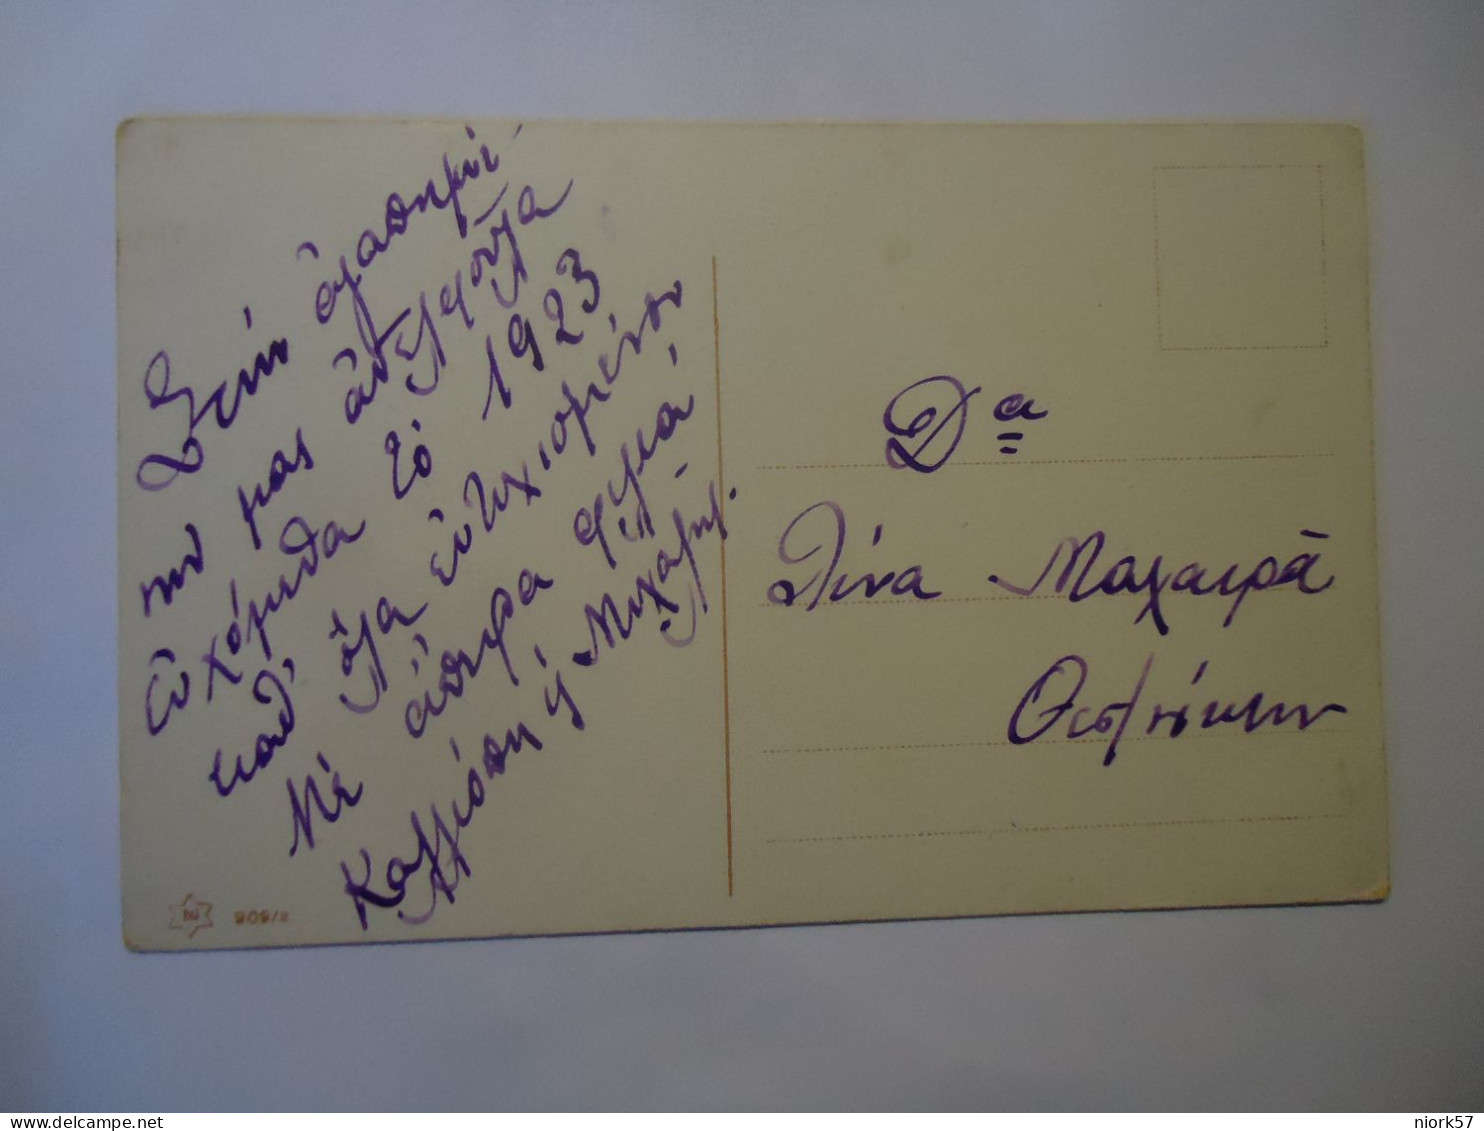 Στὴν ἀγαπημέ-
νην μας ἀδελφοῦλα
εὐχόμεθα τὸ 1923
καθ' ὅλα εὐτυχισμένον
Μὲ ἄπειρα φιλιά
Καλλιόπη ἡ Μιχαήλ.
Δα
Λίνα Μαχαιρᾶ
Θεσ/νίκην
909/2
niork57